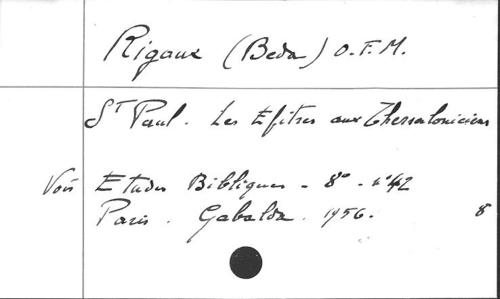 Rigaux (Beda) O.F.M.
St Paul. Les Epîtres aux Thessaloniciens
Voir Etudes Bibliques - 8° - n° 42
Paris. Gabalda. 1956. 8